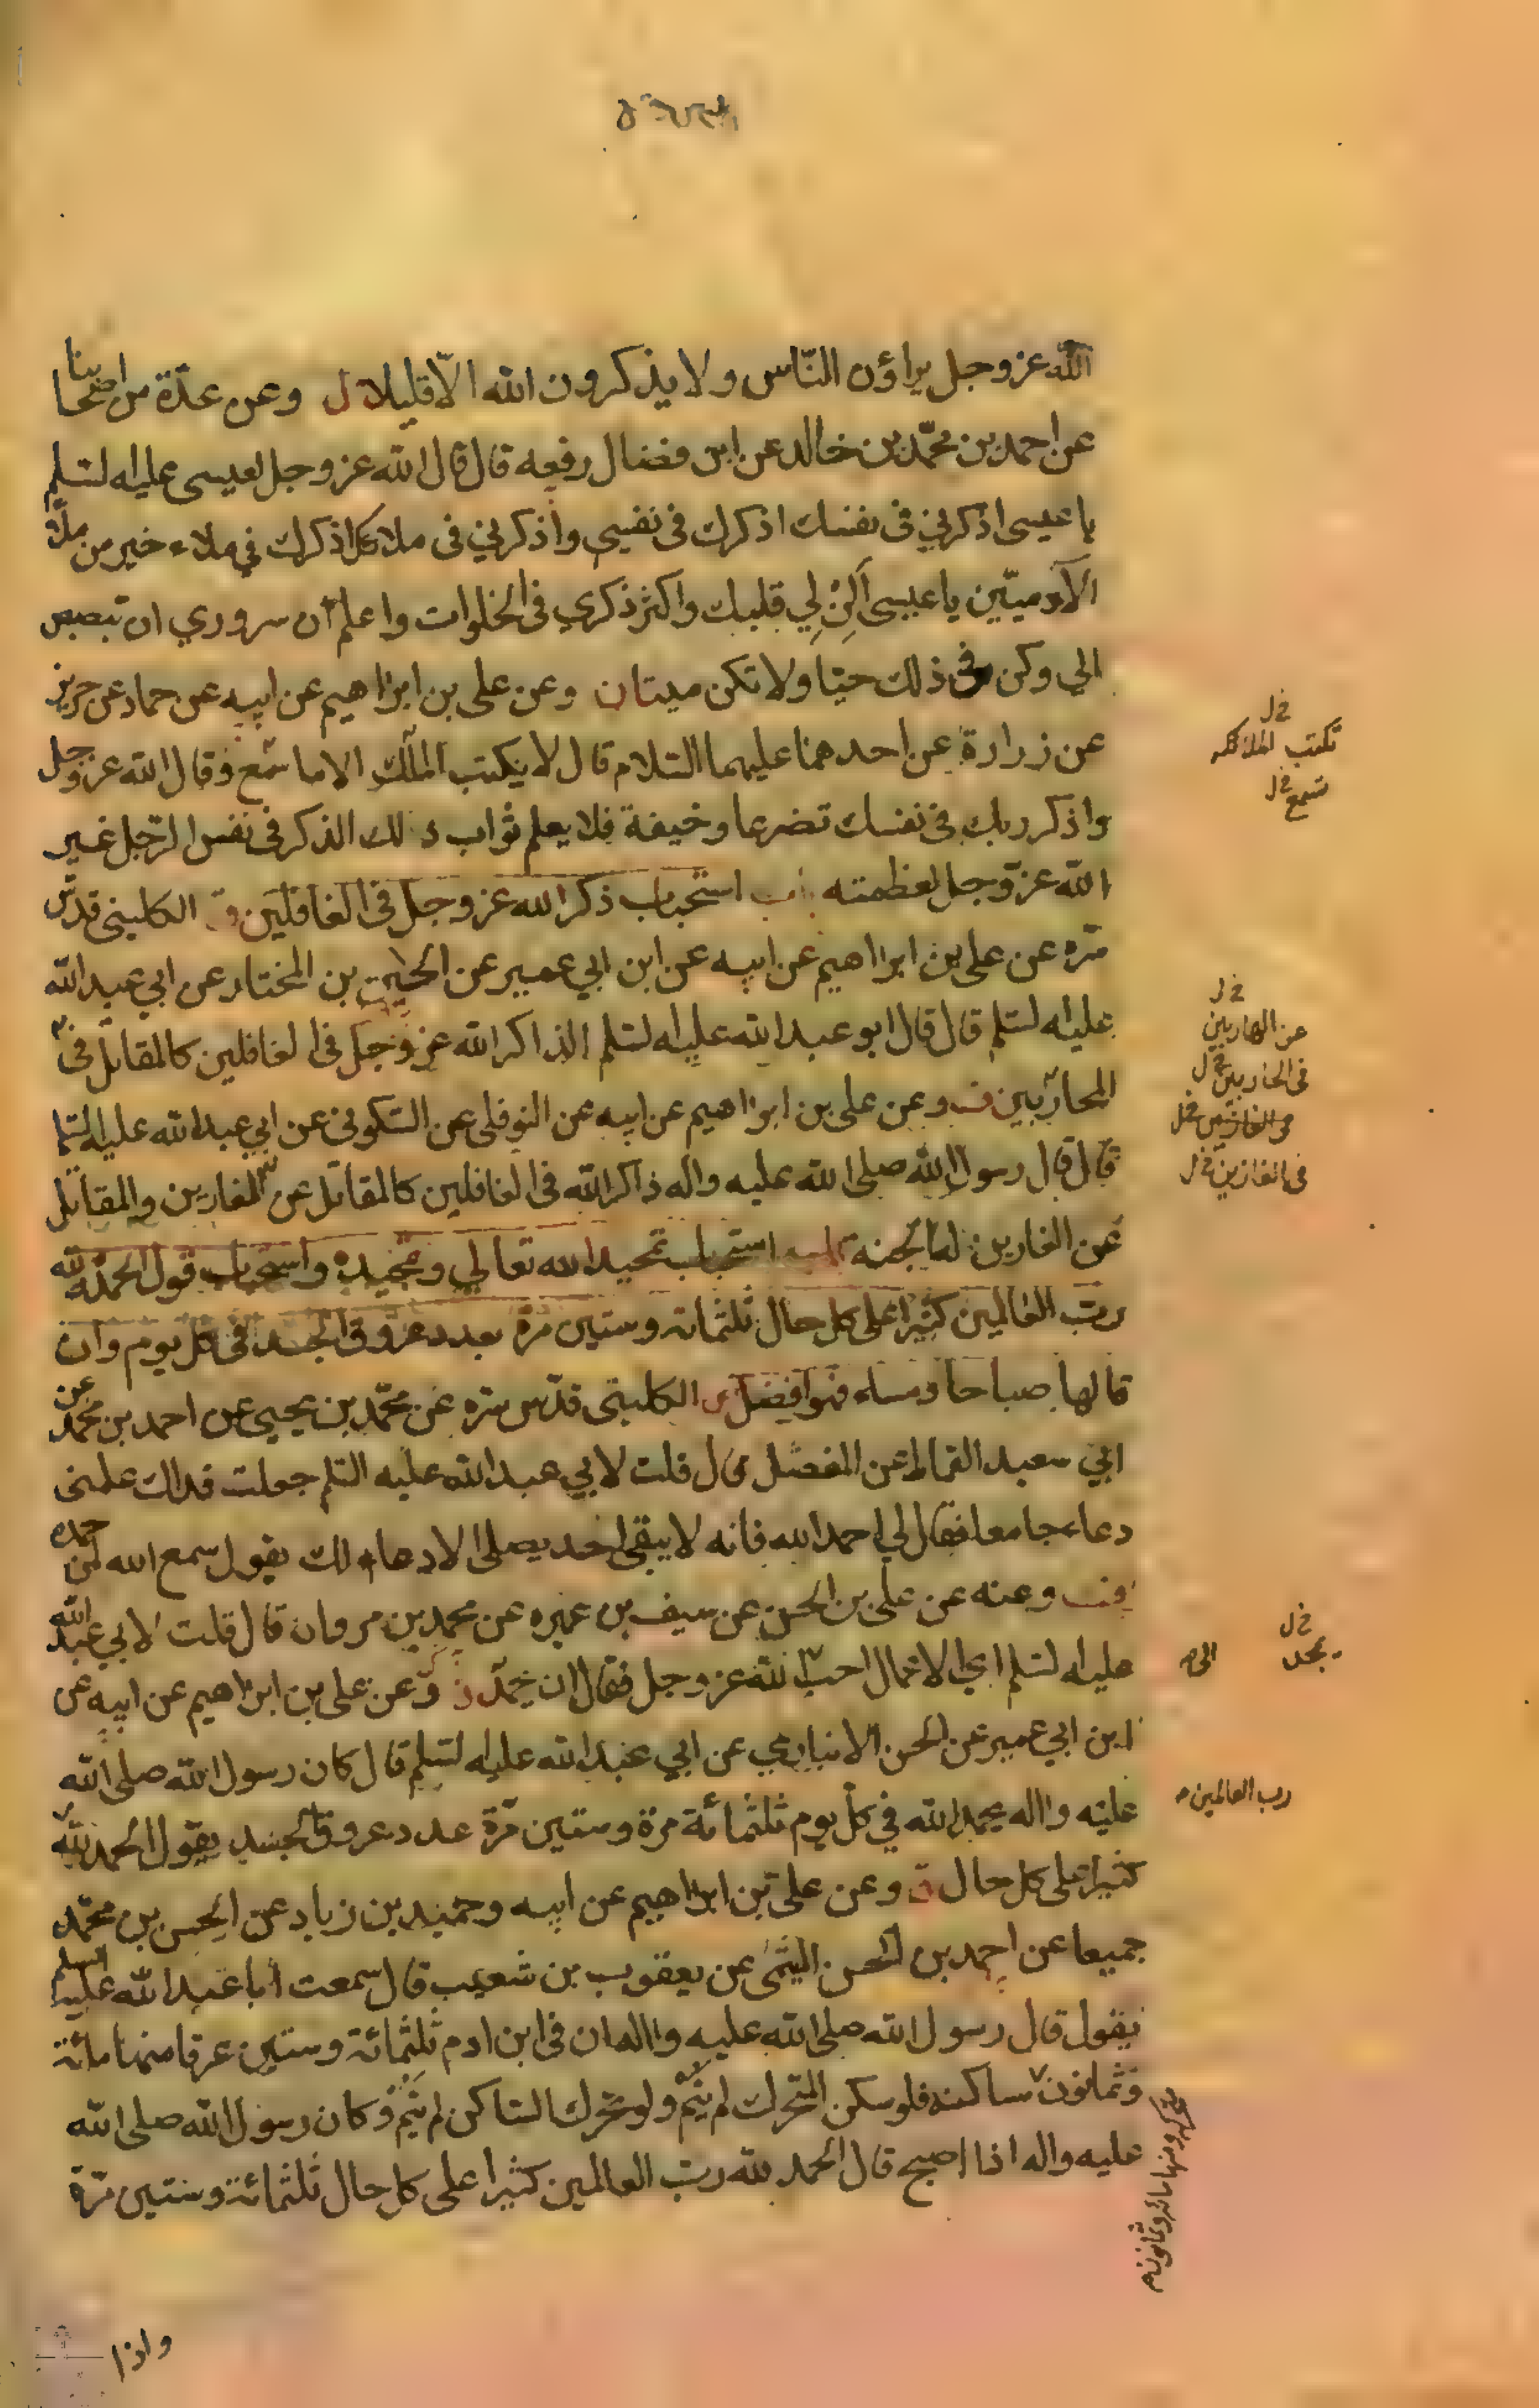 الله عز وجل يراؤن النّاس ولا يذكرون الله الّا قليلا ل وعن عدّة من اصحابنا
عن احمد بن محمّد بن خالد عن ابن فضال رفعه قال قال الله عز وجل لعيسى عليه السلم
يا عيسى اذكرني في نفسك اذكرك في نفسي واذكرني في ملاء كل اذكرك في ملاء خير من ملاء
الآدميّين يا عيسى اَلِنْ لِي قلبك واكثر ذكري في الخلوات واعلم ان سروري ان تبصبص
الي وكن في ذلك حيّا ولا تكن ميتا ن وعن علي بن ابراهيم عن ابيه عن حماد عن حريز
عن زرارة عن احدهما عليهما السّلام قال لا يكتب الملك الا ما سمع وقال الله عز وجل
واذكر ربك في نفسك تضرعا وخيفة فلا يعلم ثواب ذلك الذكر في نفس الرّجل غير
الله عزّ وجل لعظمته باب استحباب ذكر الله عز وجل في الغافلين الكليني قدّس
سّره عن علي بن ابراهيم عن ابيه عن ابن ابي عمير عن الحسين بن المختار عن ابي عبد الله
عليه السلم قال قال ابو عبد الله عليه السلم الذاكر الله عز وجل في الغافلين كالمقاتل في
المحاربين ف وعن علي بن ابراهيم عن ابيه عن النوفلي عن السّكوني عن ابي عبد الله عليه السلم
قال قال رسول الله صلى الله عليه واله ذاكر الله في الغافلين كالمقاتل عن الفارين والمقاتل
عن الفارين له الجنة باب استحباب تحميد الله تعالي وتمجيده واستحباب قول الحمد لله
ربّ العالمين كثيرا على كل حال ثلثمائه وستين مرّة بعدد عروق الجسد في كل يوم وان
قالها صباحا ومساء فهو افضل الكليني قدّس سّره عن محمّد بن يحيى عن احمد بن محمّد عن
ابي سعيد القماط عن المفضل قال قلت لابي عبد الله عليه السّلم جعلت فداك علمني
دعاء جامعا فقال لي احمد الله فانه لا يبقى احد يصلي الا دعا لك يقول سمع الله لمن حمده
ف وعنه عن علي بن الحسن عن سيف بن عميره عن محمد بن مروان قال قلت لابي عبد الله
عليه السلم اي الاعمال احبّ لله عز وجل فقال ان تحمّد ن وعن علي بن ابراهيم عن ابيه عن
ابن ابي عمير عن الحسن الانباري عن ابي عبد الله عليه السلم قال كان رسول الله صلى الله
عليه واله يحمد الله في كل يوم ثلثمائة مرّة وستين مرّة عدد عروق الجسد يقول الحمد لله
كثيرا على كل حال ق وعن علي بن ابراهيم عن ابيه وحميد بن زياد عن الحسن بن محمّد
جميعا عن احمد بن الحسن الميثمي عن يعقوب بن شعيب قال سمعت ابا عبد الله عليه السلم
يقول قال رسول الله صلى الله عليه واله ان في ابن ادم ثلثمائة وستين عرقا منها مائة
وثمانون ساكنه فلو سكن المتحرك لم ينم ولو تحرك السّاكن لم ينم وكان رسول الله صلى الله
عليه واله اذا اصبح قال الحمد لله ربّ العالمين كثيرا على كل حال ثلثمائة وستين مرّة
خ ل
تكتب الملائكه
تسمع خ ل
خ ل
عن الهاربين
في الحاربين خ ل
في الغازين خ ل
خ ل
يحمد
الى
رب العالمين
متحركه ومنها مائه وثمانون
واذا